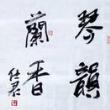 琴韻
蘭香